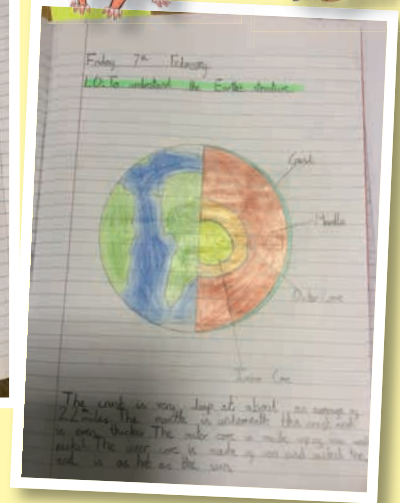 Friday 7th February
L.O: To understand the Earths structure
Crust
Mantle
Outer Core
Inner Core
The crust is very deep at about an average of
22 miles. The mantle is underneath the crust and
is even thicker. The outer core is made up of iron and
nickel. The inner core is made of iron and nickel too
and is as hot as the sun.